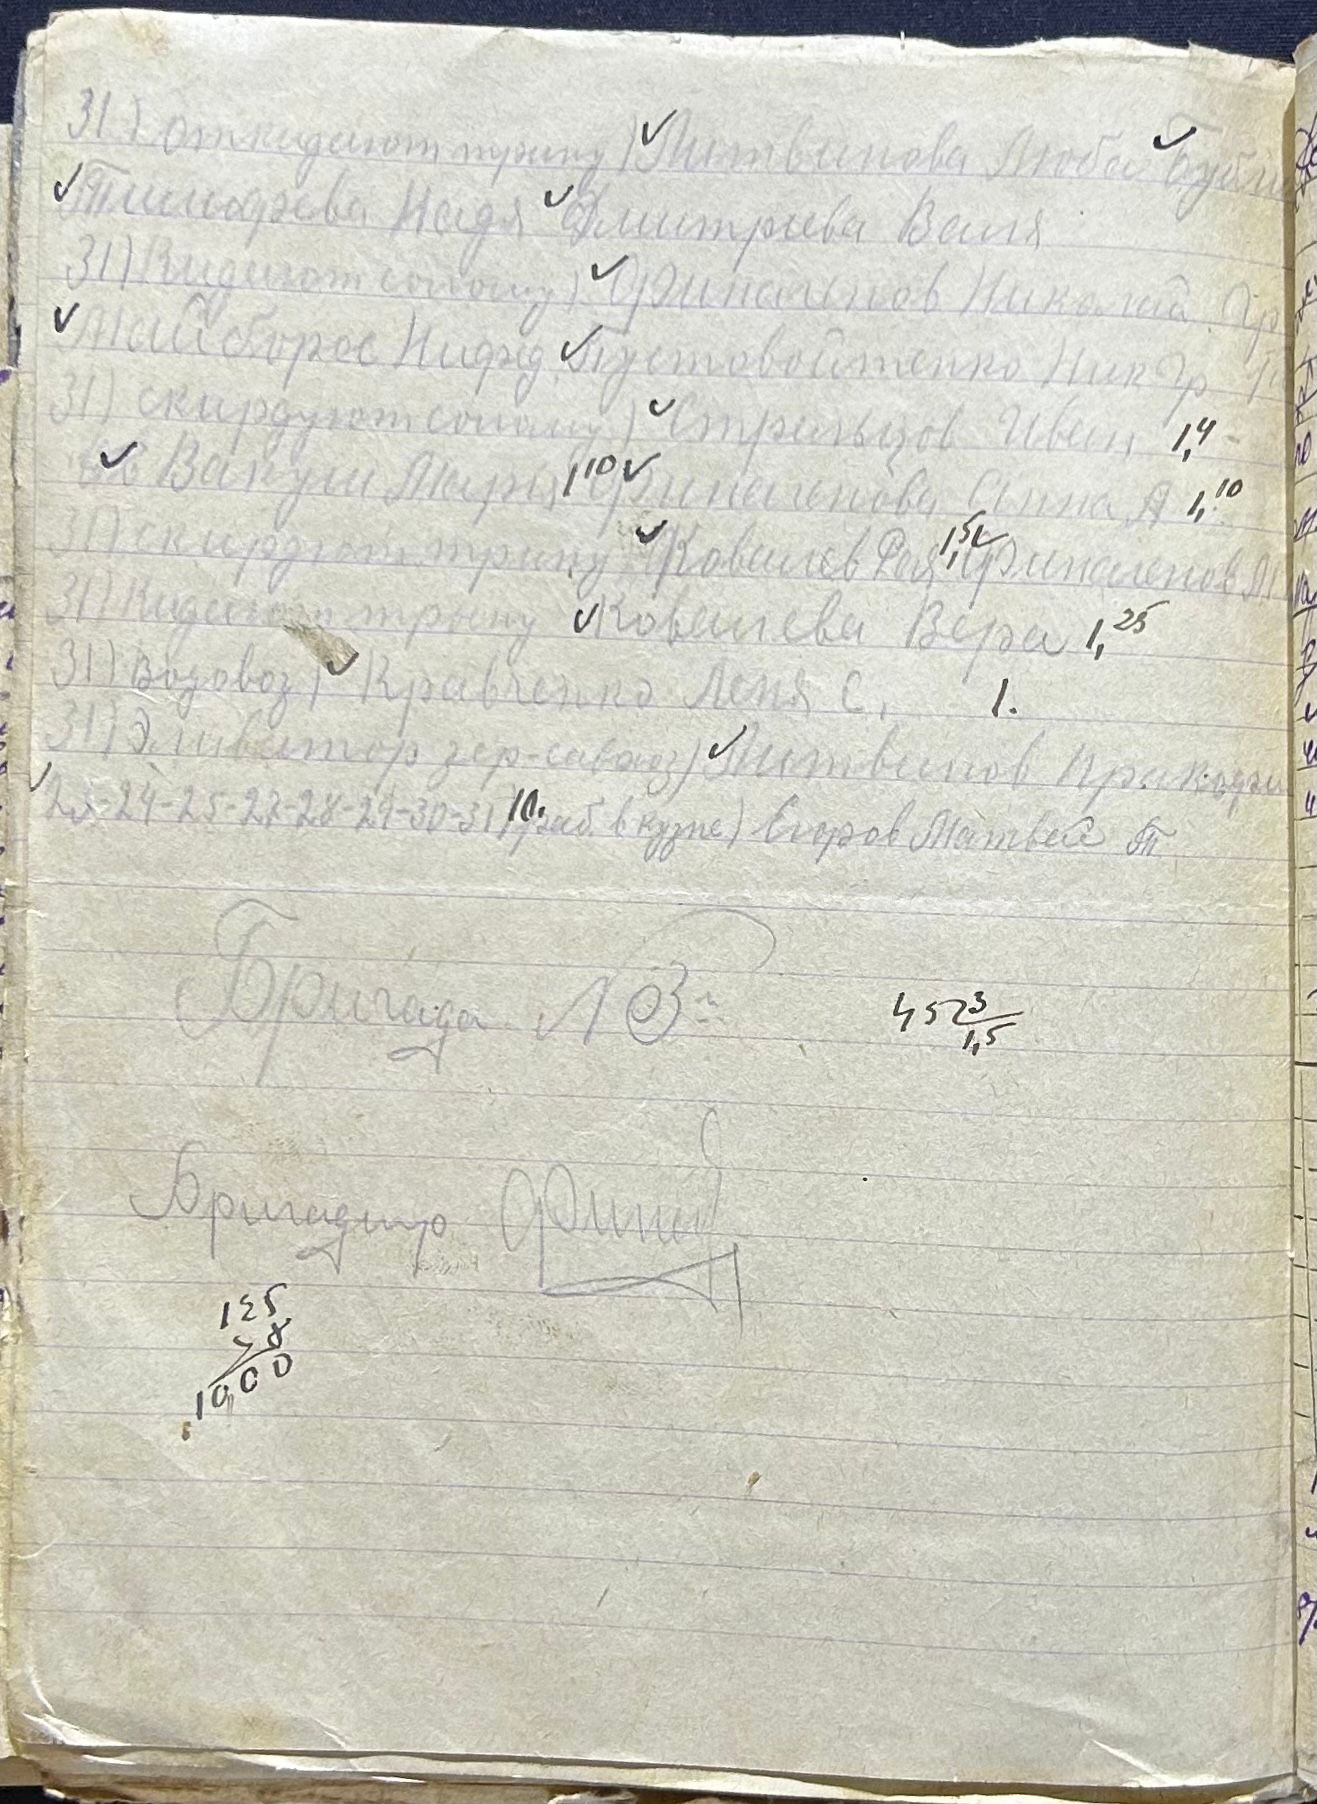 31) откидают трину) ✓ Литвинова Люба ✓ Бубли
✓ Тимофеева Надя ✓ Дмитриева Валя
31) Кидают солому) ✓ Финагенов Николай Гр
✓ Майборос ✓ Пустовойтенко Ник Гр
31) скирдуют солому) ✓ Стрельцов Иван 1,4
✓ Вакули Мария 1,10 ✓ Финагенова Анна А 1,10
31) скирдуют трину ✓ Ковалев Рая 1,5 ✓ Финагенов
31) Кидают трину ✓ Ковалева Вера 1,25
31) Водовоз) ✓ Кравченко Леня С. 1.
31) Эливатор зер-совхоз) ✓ Литвинов
✓ 23-24-25-27-28-29-30-31) 10. раб. в кузне) Егоров Матвей Т
Бригада № 3й
45 3
1,5
Бригадир
125
х 8
1000